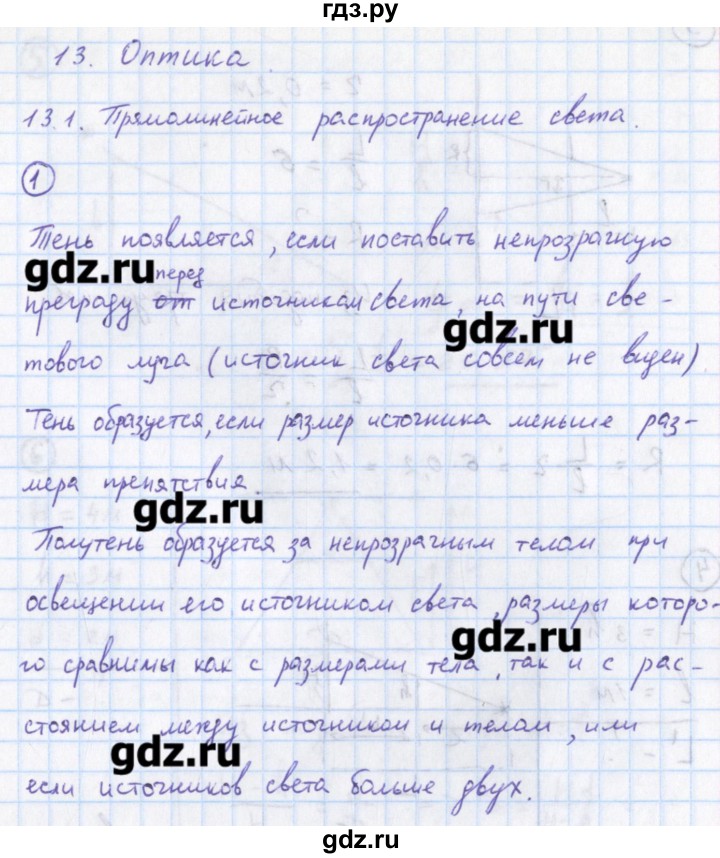 гдз.ру
13. Оптика
13.1. Прямолинейное распространение света.
1
Тень появляется, если поставить непрозрачную
gdz.ru перед
преграду от источникам света, на пути све-
gdz.ru
тового луча (источник света совсем не виден)
Тень образуется, если размер источника меньше раз-
мера препятствия.
gdz.ru
Полутень образуется за непрозрачным телом при
освещении его источником света, размеры которо-
gdz.ru
го сравнимы как с размерами тела, так и с рас-
стоянием между источником и телом, или
gdz.ru
если источников света больше двух.
gdz.ru